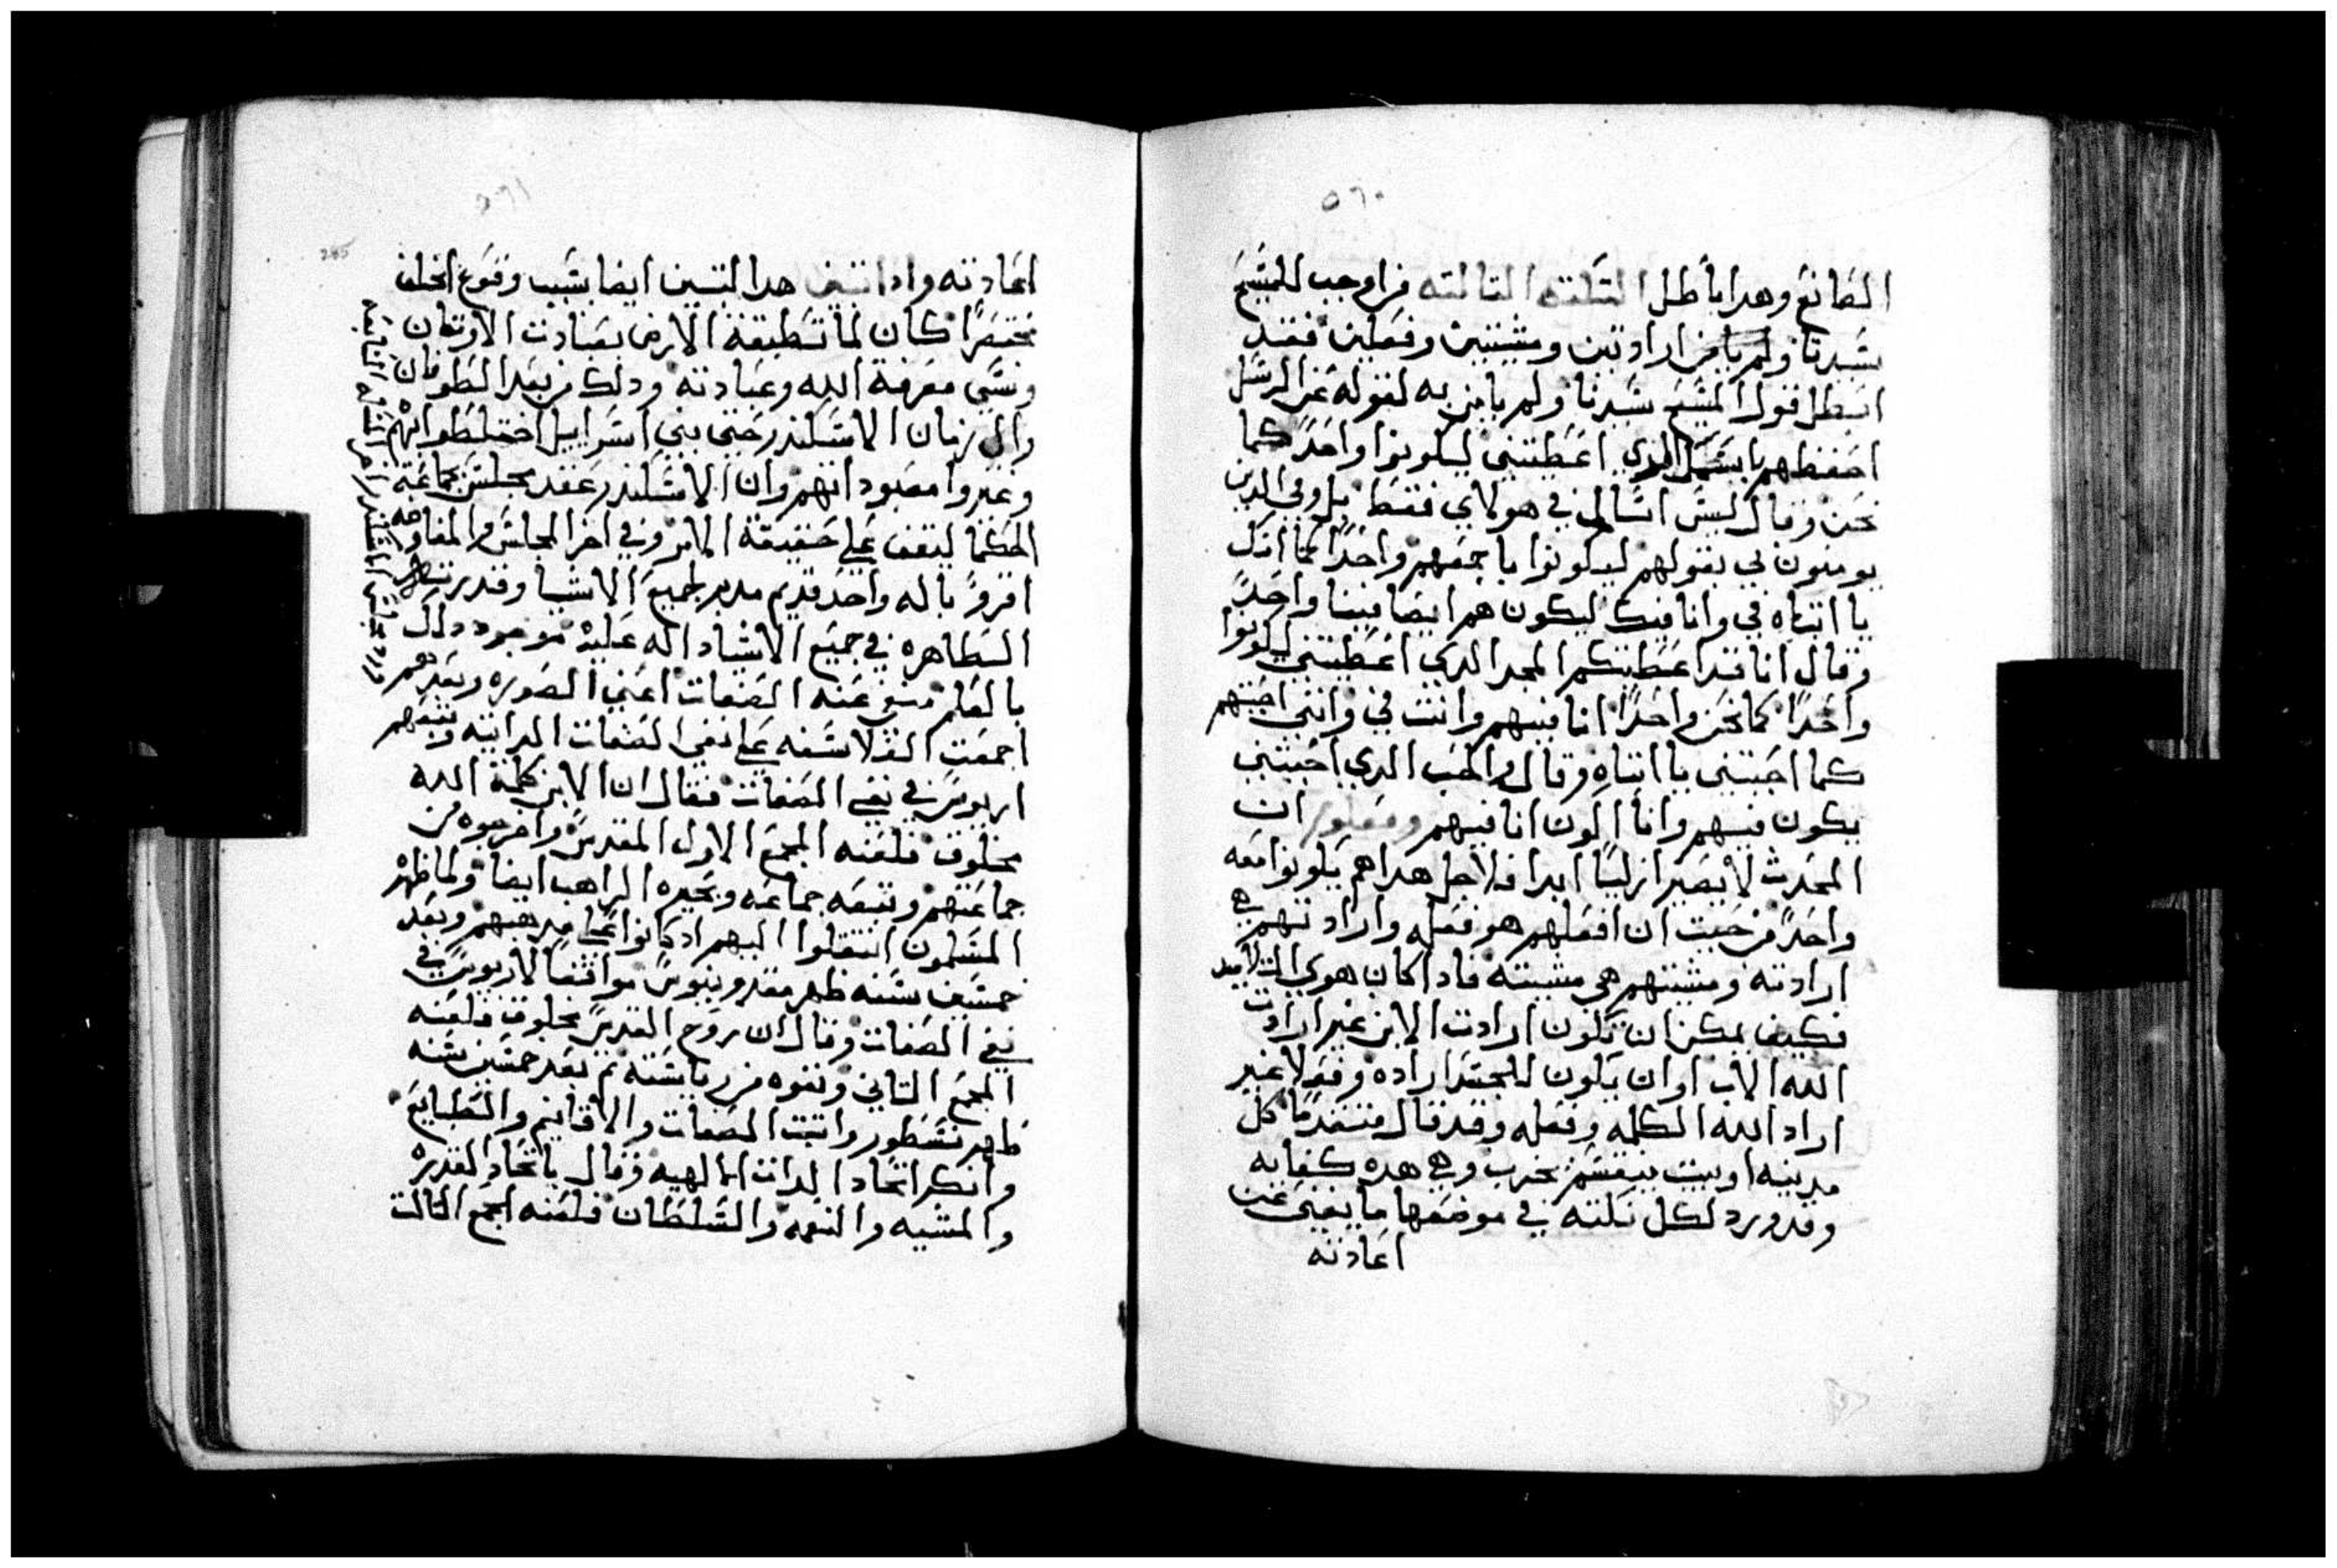 ٥٦٠
الصانع وهدا باطل النكته التالته من اوجب للمسيح
سيدنا ولم يامن ارادتين ومشيتين وفعلين فقد
ابطل قول المسيح سيدنا ولم يامن به لقوله عن الرسل
احفظهم باسمك الدي اعطيتني ليكونوا واحدًا كما
نحن وقال ليس اسالك في هولاي فقط بل وفي الدين
يومنون بي بقولهم ليكونوا باجمعهم واحدًا كما انك
يا ابتاه في وانا فيك ليكون هم ايضا فينا واحدًا
وقال انا قد اعطيتكم المجد الدي اعطيتني ليكونوا
واحدًا كما نحن واحدًا انا فيهم وانت في وانني احبتهم
كما احببتني يا ابتاه وقال والحب الدي احببتني
يكون فيهم وانا اكون انا فيهم ومعلوم ان
المحدث لا يصير ازليًا ابدا فلاجل هدا هم يكونوا معه
واحدًا من حيت ان افعلهم هو فعله وارادتهم هي
ارادته ومشيتهم هي مشيته فادا كان هوي التلاميد
فكيف يمكن ان تكون ارادت الابن غير ارادت
الله الاب او ان يكون للجسد اراده وفعلا غير
اراد الله الكلمه وفعله وقد قال متقدمًا كل
مدينه او بيت ينقسم يخرب وفي هده كفايه
وقد ورد لكل نكته في موضعها ما يغني عن
اعادته
٥٦١
265
اعادته وادا تبين هدا لتبين ايضا بسبب وقوع الخلف
مختصرًا كان لما تطبقة الارض بعبادت الاوتان
ونسي معرفة الله وعبادته ودلك من بعد الطوفان
والى زمان الاسكندر حتى بني اسراييل اختلطوا بهم
وغيروا معبوداتهم وان الاسكندر عقد مجلس بجماعة
الحكما ليقف على حقيقة الامر وفي اخر المجلس والمفاوضه
اقروا باله واحد قديم مدبر لجميع الاشيا وقدرته
الظاهره في جميع الاشيا داله عليه موجود دال
بالعلم منفي عنه الصفات اعني الصوره وبعدهم
اجمعت الفلاسفه على نفي الصفات الداتيه وتبعهم
اريوس في نفي الصفات فقال ان الابن كلمة الله
مخلوق فلعنه المجمع الاول المقدس واخرجوه من
جماعتهم وتبعه جماعه وبحيره الراهب ايضا ولما ظهر
المسلمون انتقلوا اليهم اد كانوا على مدهبهم وبعد
خمسين سنه ظهر مقدونيوس موافقا لاريوس في
نفي الصفات وقال ان روح القدس مخلوق فلعنه
المجمع التاني ونفوه من رياسته تم بعد خمسين سنه
ظهر نسطور واتبت الصفات والاقانيم والطبايع
وانكر اتحاد الدات الالهيه وقال باتحاد القدره
والمشيه والنعمه والسلطان فلعنه المجمع التالت